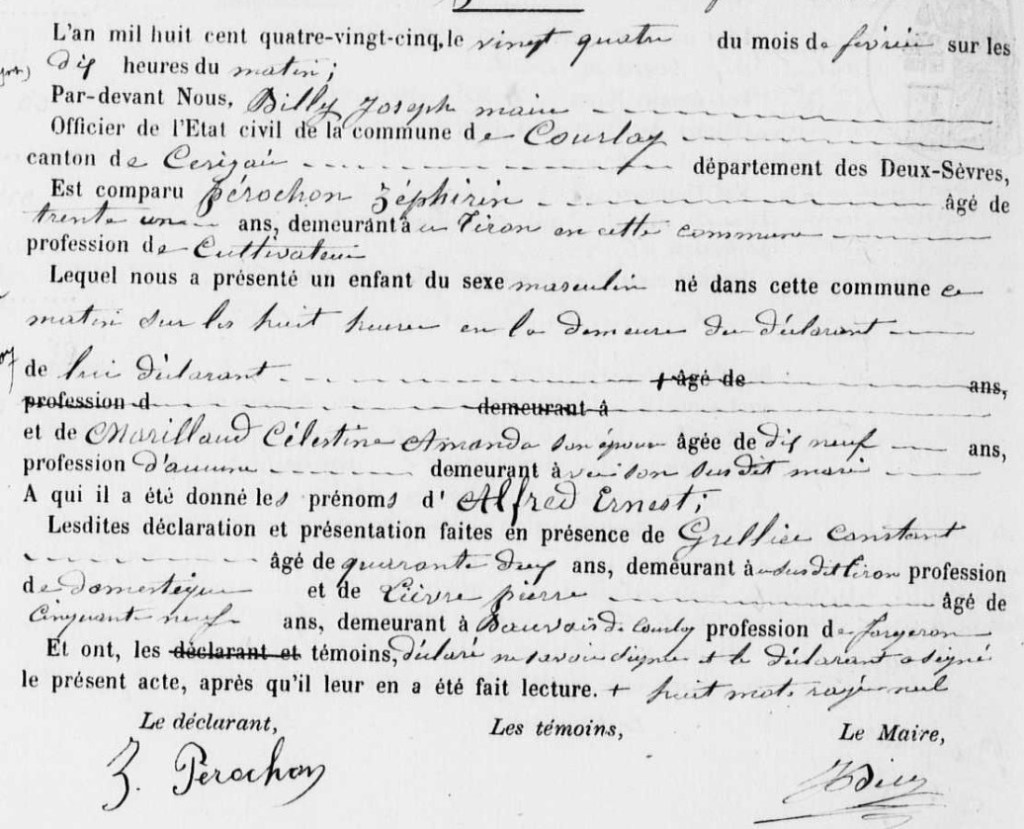 L'an mil huit cent quatre-vingt-cinq, le vingt quatre du mois de février sur les
dix heures du matin;
Par-devant Nous, Billy Joseph maire
Officier de l'Etat civil de la commune de Courlay
canton de Cerizai département des Deux-Sèvres,
Est comparu Pérochon Zéphirin âgé de
trente un ans, demeurant à u Tiron en cette commune
profession de Cultivateur
Lequel nous a présenté un enfant du sexe masculin né dans cette commune ce
matin sur les huit heures en la demeure du déclarant
de lui déclarant + âgé de ans,
profession d demeurant à
et de Marillaud Célestine Amanda son épouse âgée de dix neuf ans,
profession d'aucune demeurant à son susdit mari
A qui il a été donné les prénoms d'Alfred Ernest;
Lesdites déclaration et présentation faites en présence de Grellier Constant
âgé de quarante deux ans, demeurant à susdit Tiron profession
de domestique et de Lièvre pierre âgé de
cinquante neuf ans, demeurant à Beauvais de Courlay profession de forgeron
Et ont, les déclarant et témoins, déclaré ne savoir signer et le déclarant a signé
le présent acte, après qu'il leur en a été fait lecture. + huit mots rayés nul
Le déclarant, Les témoins, Le Maire,
Z. Perochon JBilly